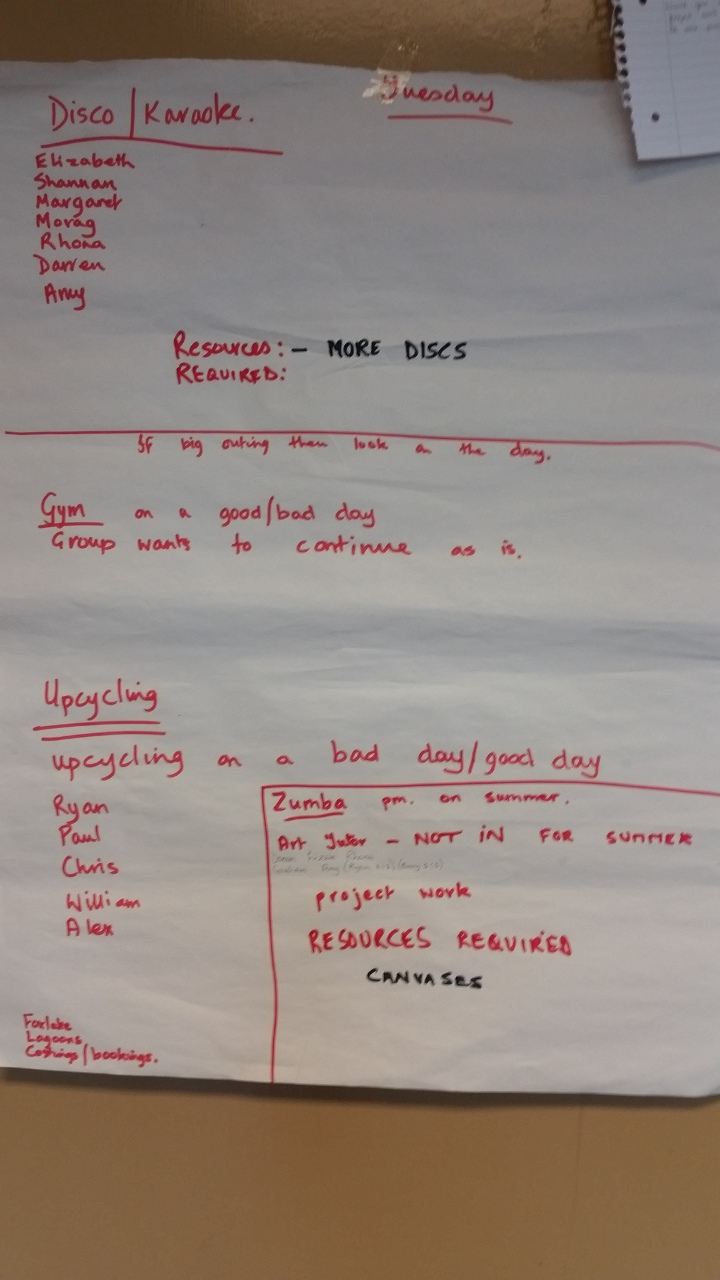 Tuesday
Disco/Karaoke.
Elizabeth
Shannan
Margaret
Morag
Rhona
Darren
Amy
Resources: - MORE DISCS
REQUIRED:
If big outing then look on the day.
Gym on a good/bad day
Group wants to continue as is.
Upcycling
upcycling on a bad day/good day
Ryan
Paul
Chris
William
Alex
Zumba pm. on summer.
Art Tutor - NOT IN FOR SUMMER
project work
RESOURCES REQUIRED
CANVASES
Foxlake
Lagoons
Costings/bookings.